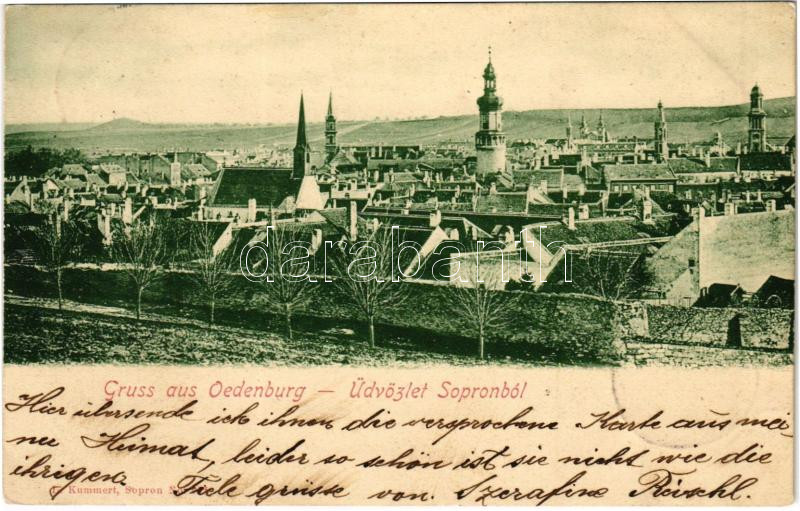 darabanth
Gruss aus Oedenburg — Üdvözlet Sopronból
Hier übersende ich ihnen die versprochene Karte aus mei-
ner Heimat, leider so schön ist sie nicht wie die
ihrigen. Fiele grüsse von. Szerafine
Kummert, Sopron